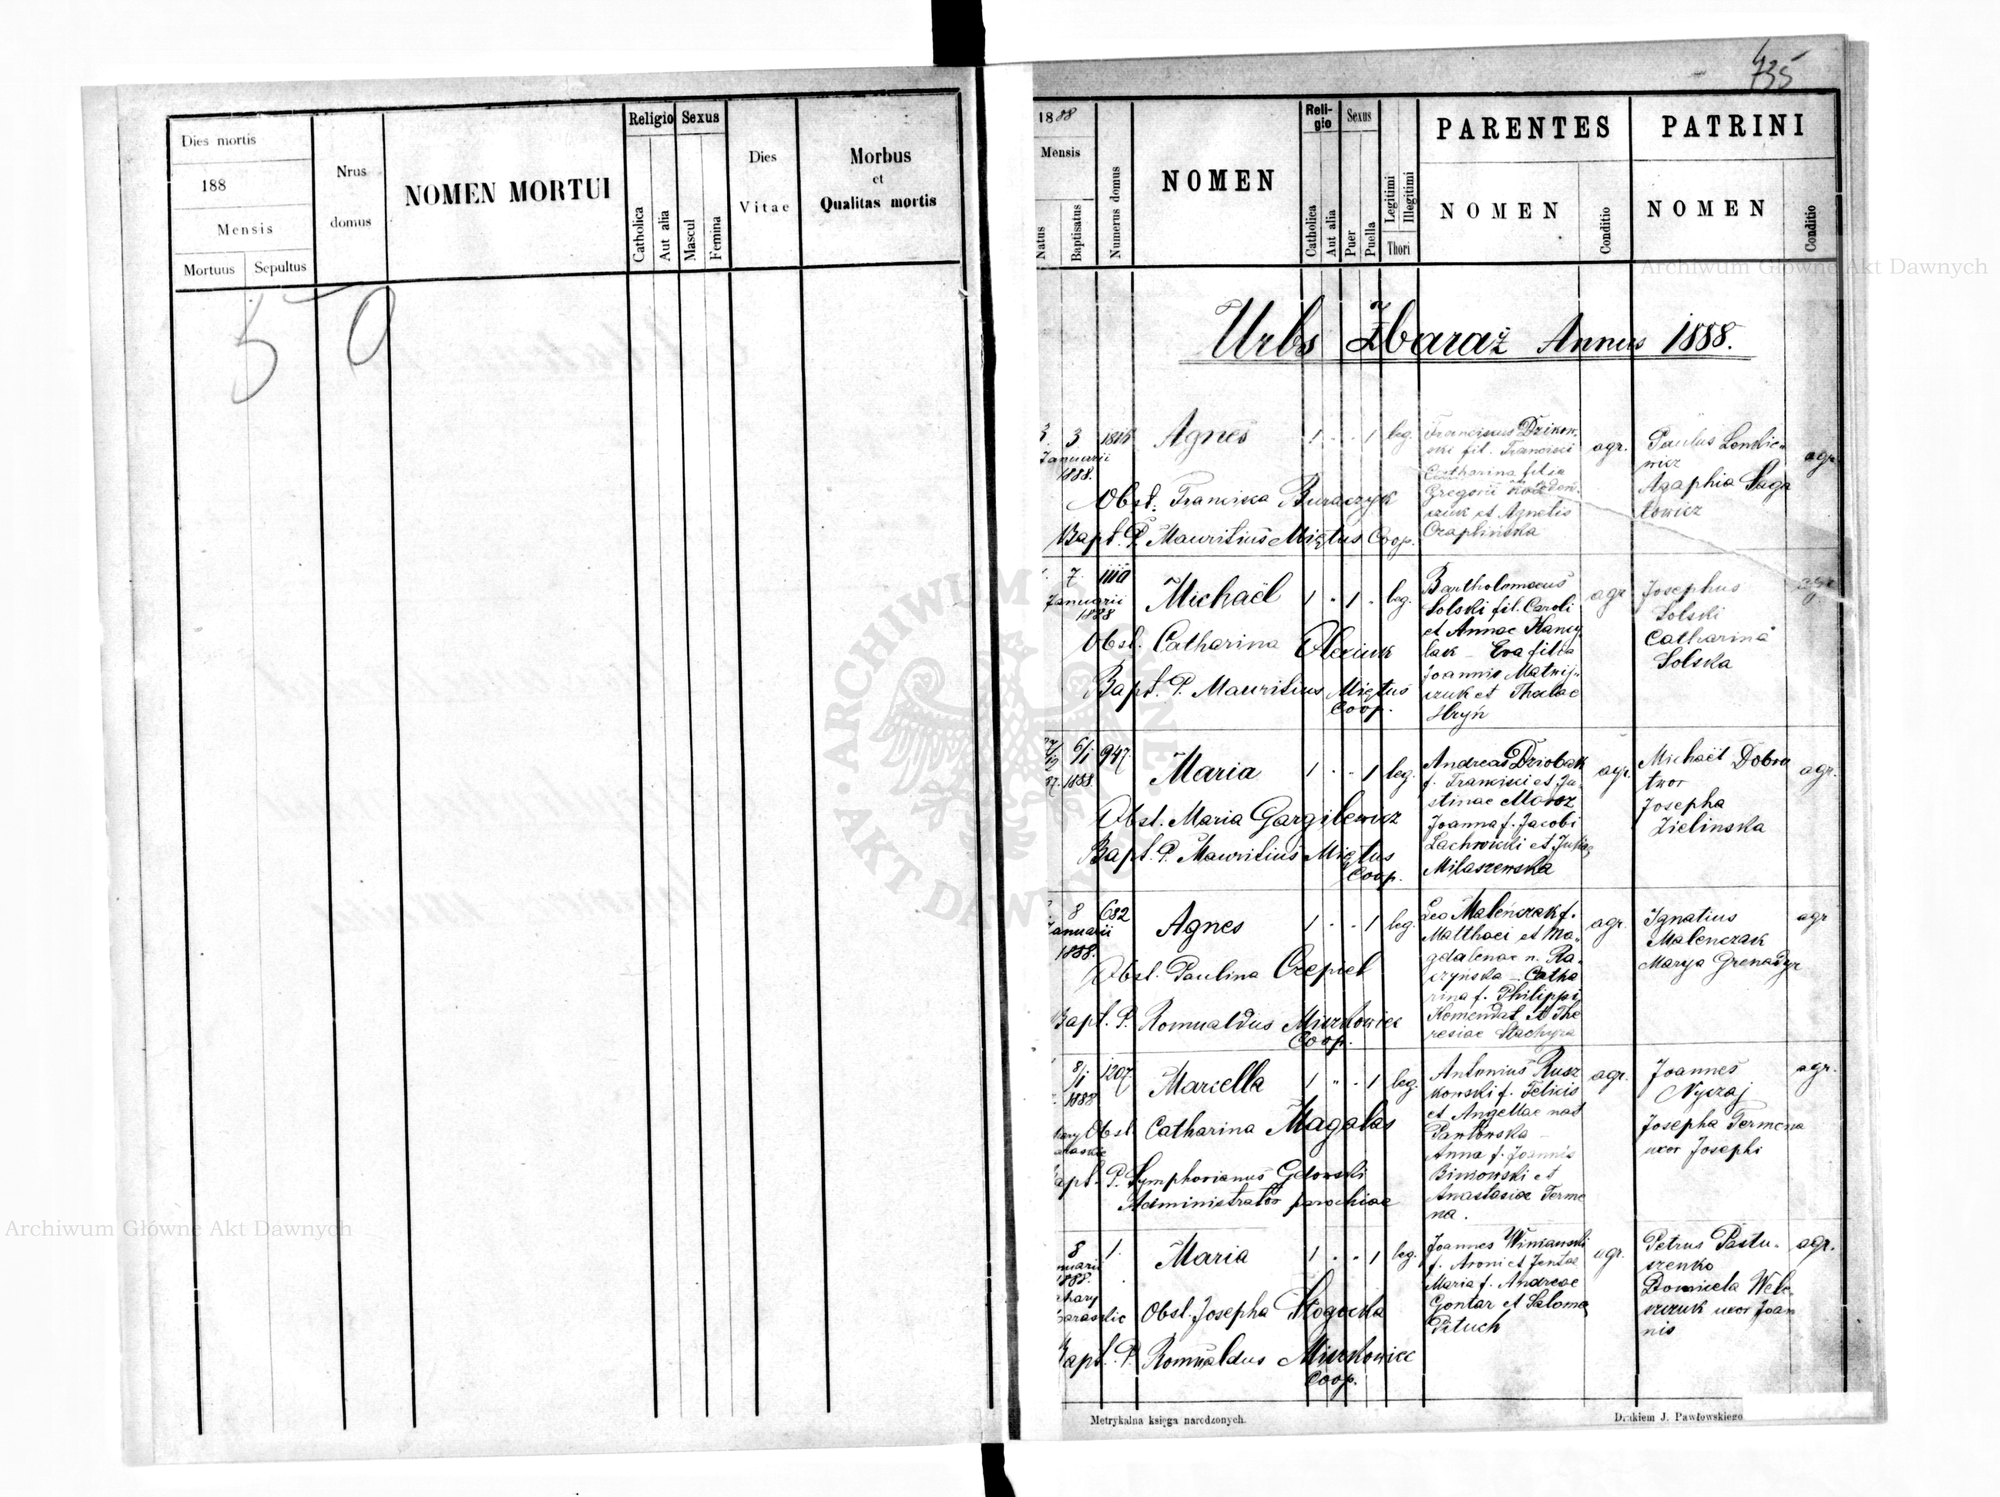 735
Dies mortis
188
Mensis
Mortuus Sepultus
Nrus
domus
NOMEN MORTUI
Religio
Catholica
Aut alia
Sexus
Mascul
Femina
Dies
Vitae
Morbus
et
Qualitas mortis
50
1888
Mensis
Natus
Baptisatus
Numerus domus
NOMEN
Reli-
gio
Catholica
Aut alia
Sexus
Puer
Puella
Legitimi
Illegitimi
Thori
PARENTES
NOMEN
Conditio
PATRINI
NOMEN
Conditio
Urbs Zbaraż Annus 1888.
3 3
Januarii
1888.
Agnes
1 . . 1 leg.
Obst. Francisca Buraczyk
Bapt. P. Mauritius Miętus Coop.
Franciscus Dzikow-
ski fil. Francisci
Catharina filia
Gregorii
czuk et Agnetis
Czaplińska
agr.
Paulus Lenkie-
wicz
Agaphia Saga
towicz
agr.
7
Januarii
1888
Michaël
1 . 1 . leg.
Obst. Catharina Olexiuk
Bapt. P. Mauritius Miętus
Coop.
Bartholomaeus
Solski fil. Caroli
et Annae Hancy
lak - Eva filia
Joannis Matwij-
czuk et Theclae
Hryń
agr
Josephus
Solski
Catharina
Solska
agr
6/1 947.
1888.
Maria
1 . . 1 leg.
Obst. Maria Gargilewicz
Bapt. P. Mauritius Miętus
Coop.
Andreas Dziobak
f. Francisci et Ju-
stinae Moroz
Joanna f. Jacobi
Lachowicki et Julia
Milaszewska
agr.
Michaël Dobro
twor
Josepha
Zielinska
agr.
8 682
Januarii
1888.
Agnes
1 . . 1 leg.
Obst. Paulina Czepiel
Bapt. P. Romualdus Mirkowicz
Coop.
Leo Maleńczak f.
Matthaei et Ma-
gdalenae n. Ra-
czyńska - Catha
rina f. Philippi
Komendat et The
resiae Stachyra
agr.
Ignatius
Malenczak
Marya Grenadyr
agr
8/1 1207.
1888
Marcella
1 " . 1 leg.
Obst. Catharina Magalas
Bapt. P. Symphorianus Gdowski
Administrator parochiae
Antonius Rusz
kowski f. Felicis
et Angellae nat
Pawłowska -
Anna f. Joannis
Binkowski et
Anastasiae Terme
na.
agr.
Joannes
Nyczaj
Josepha Termena
uxor Josephi
agr.
8 1.
Maria
1 . . 1 leg.
Obst. Josepha Stogocka
Bapt. P. Romualdus Mirkowicz
Coop.
Joannes Winiawski
f. Aroni et Jentae
Maria f. Andreae
Gontar et Salomea
Pituch
agr.
Petrus Pastu-
szenko
Domicela Wele-
szczuk uxor Joan
nis
agr.
Metrykalna księga narodzonych.
Drukiem J. Pawłowskiego
Archiwum Główne Akt Dawnych
Archiwum Główne Akt Dawnych
ARCHIWUM GŁÓWNE AKT DAWNYCH